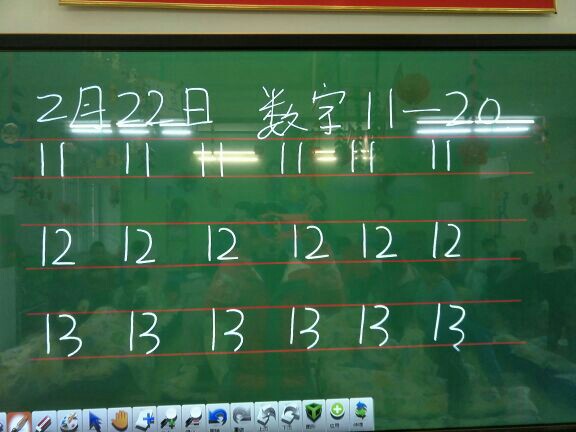 2月22日 数字11-20
11 11 11 11 11 11
12 12 12 12 12 12
13 13 13 13 13 13